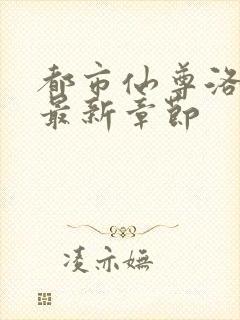 都市仙尊洛
最新章節
凌亦嫵